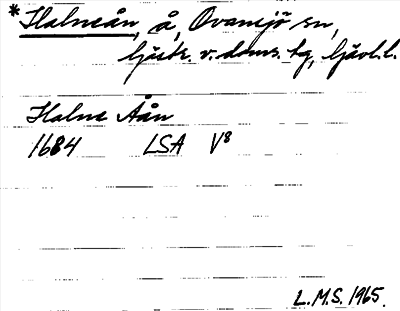 *Halneån, å, Ovansjö sn,
Gästr. v. doms. hg, Gävl. l.
Halne Aån
1684 LSA V8
L.M.S. 1965.